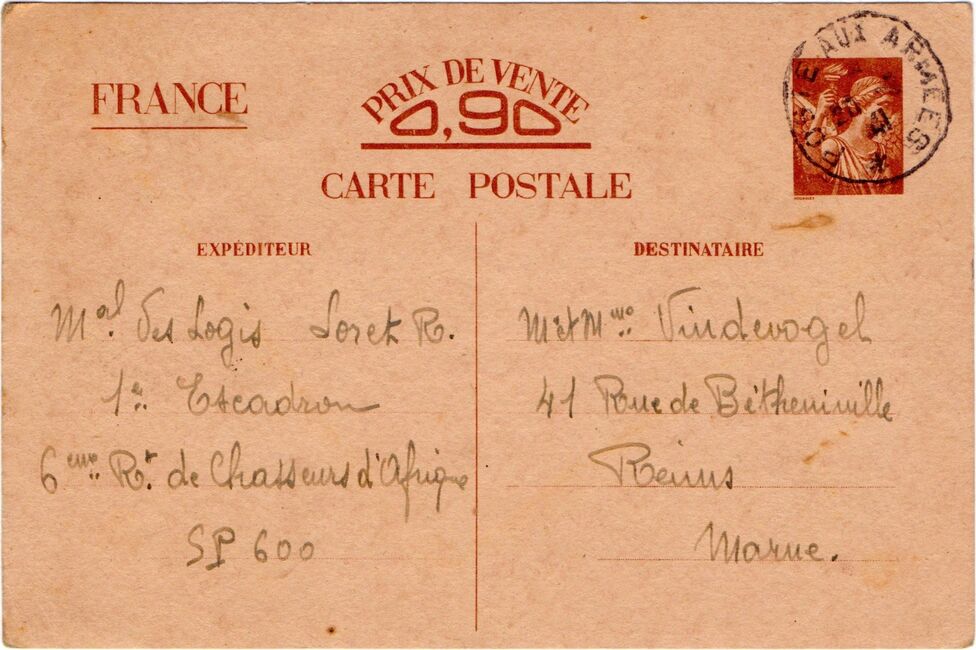 FRANCE
PRIX DE VENTE
0,90
CARTE POSTALE
POSTE AUX ARMÉES
EXPÉDITEUR
Mal des Logis Loret R.
1er Escadron
6eme Rt. de Chasseurs d'Afrique
SP 600
DESTINATAIRE
M et Mme Vindevogel
41 Rue de Bétheniville
Reims
Marne.